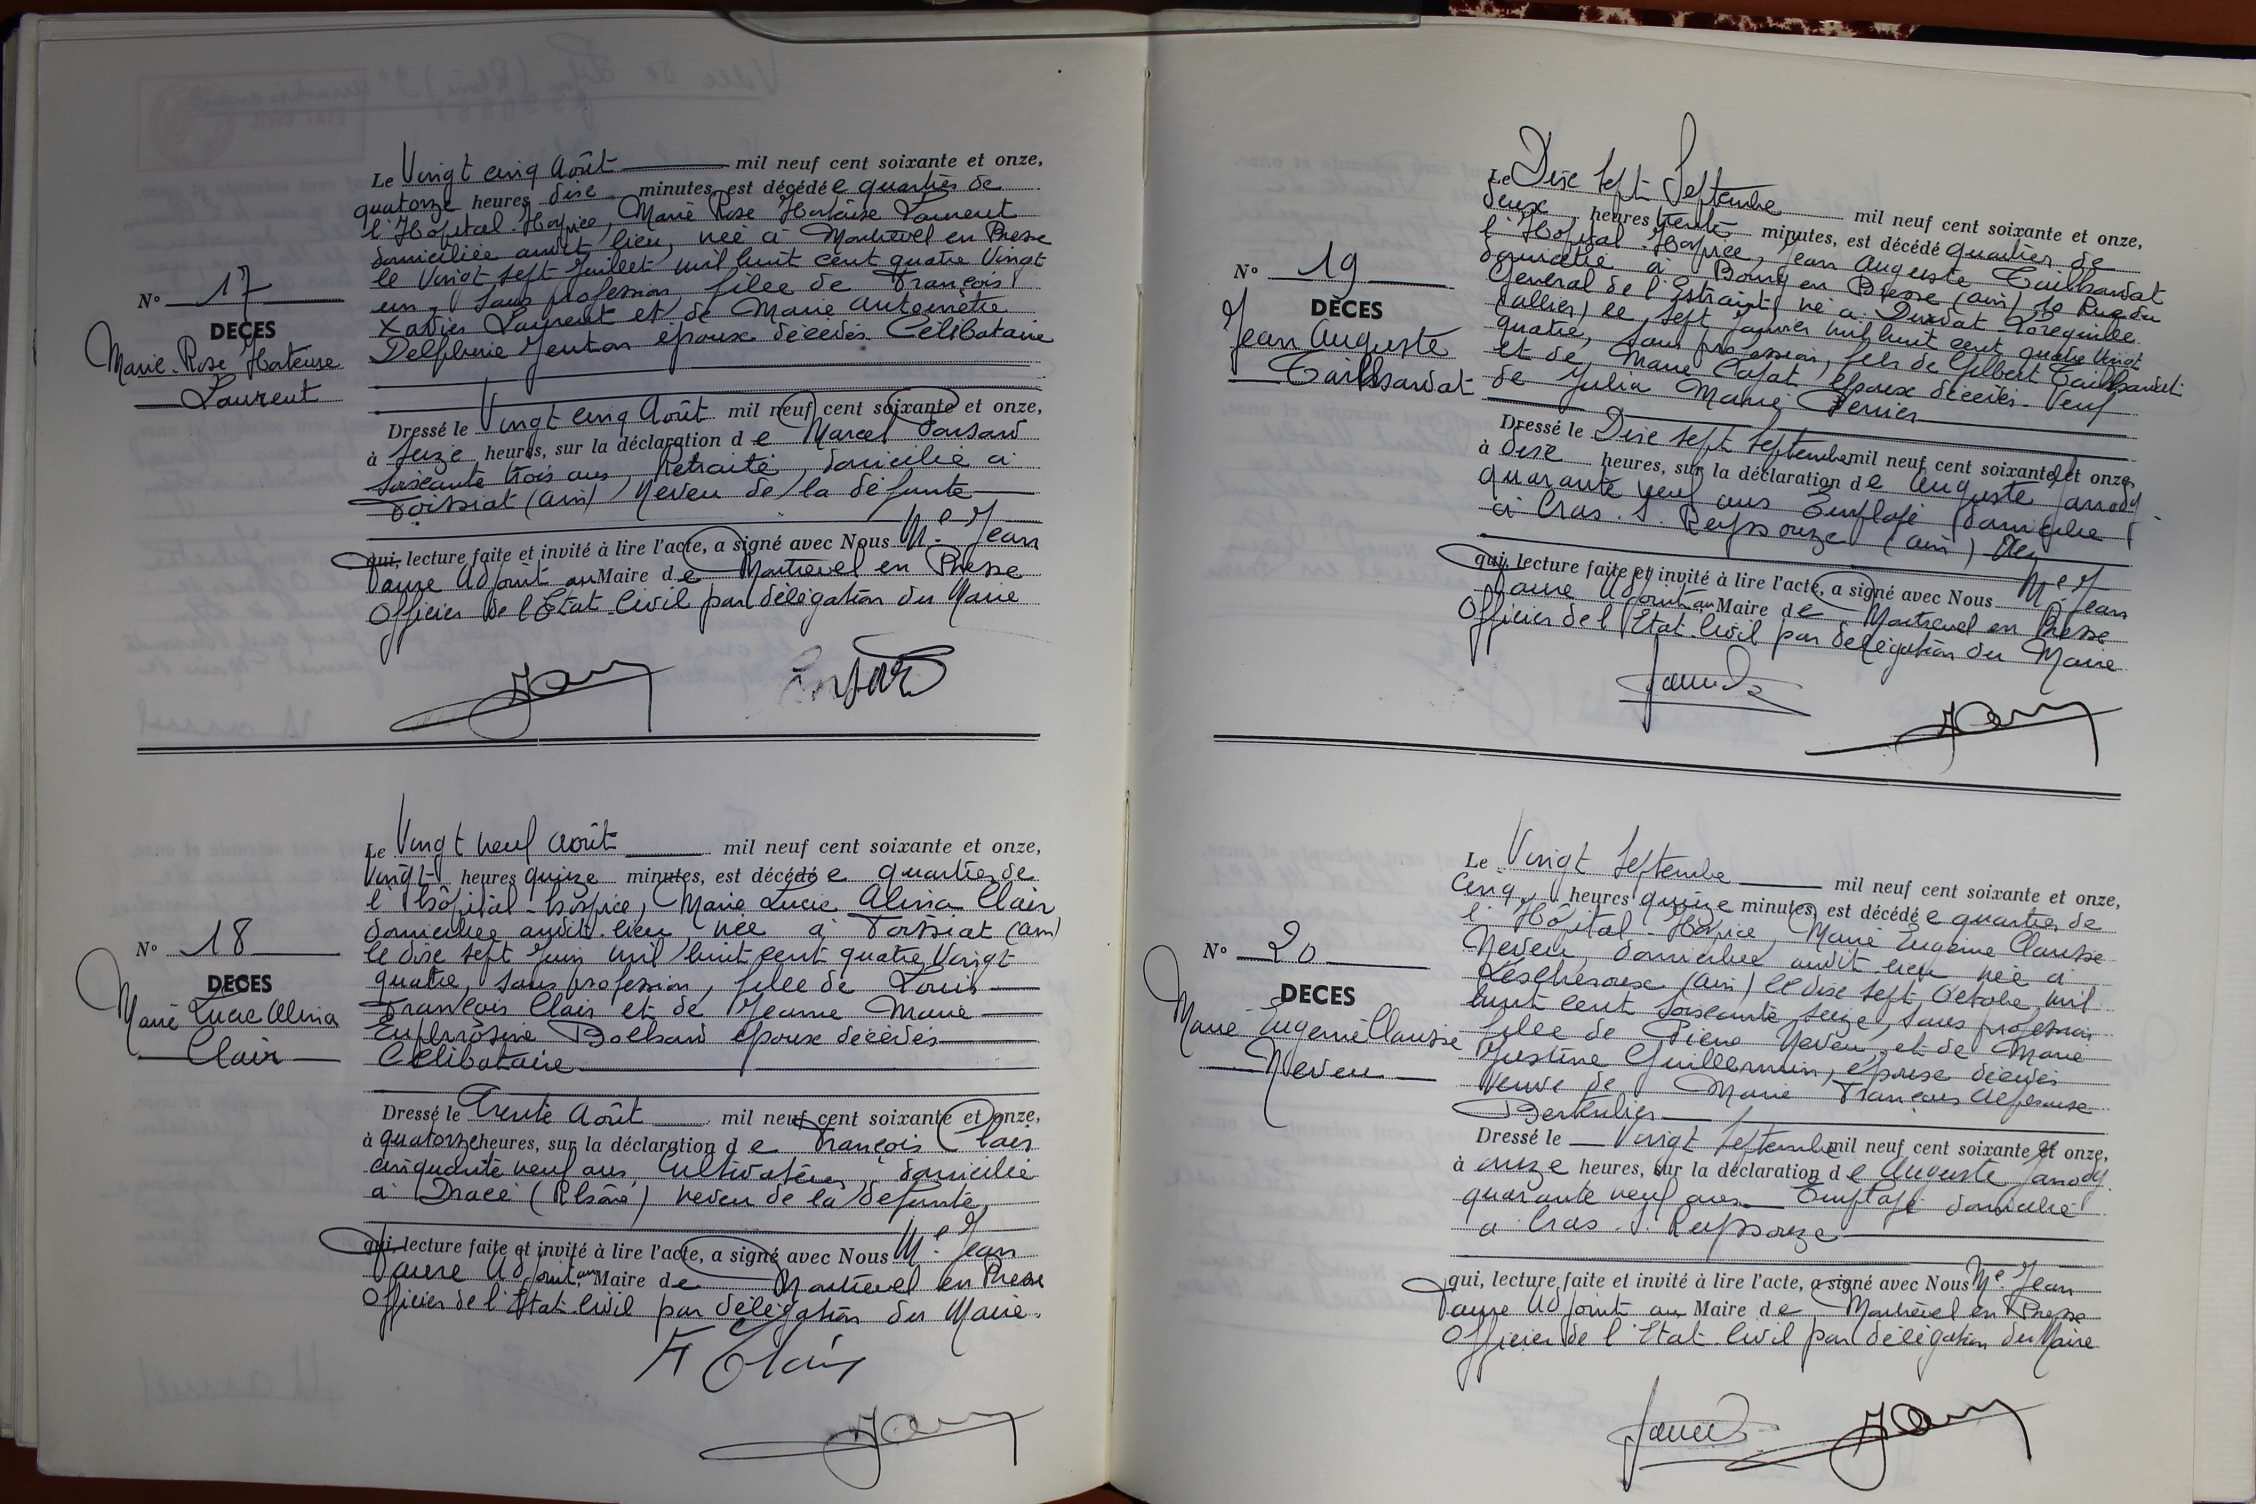 N° 17
DECES
Marie-Rose Hortense
Laurent
Le Vingt cinq Août mil neuf cent soixante et onze,
quatorze heures dix minutes, est décédé e quartier de
l'Hôpital-Hospice, Marie Rose Hortense Laurent
domiciliée audit lieu, née à Montrevel en Bresse
le Vingt sept Juillet mil huit cent quatre Vingt
un, sans profession fille de François
Xavier Laurent et de Marie Antoinette
Delphine époux décédés. Célibataire
Dressé le Vingt cinq Août mil neuf cent soixante et onze,
à seize heures, sur la déclaration d e Marcel
soixante trois ans, Retraité, domicilié à
Foissiat (ain) Neveu de la défunte
qui, lecture faite et invité à lire l'acte, a signé avec Nous Me Jean
Faure Adjoint au Maire de Montrevel en Bresse
Officier de l'Etat-Civil par délégation du Maire
N° 18
DECES
Marie Lucie Alina
Clair
Le Vingt neuf Août mil neuf cent soixante et onze,
Vingt heures quinze minutes, est décédé e quartier de
l'hôpital-hospice, Marie Lucie Alina Clair
domiciliée audit lieu née à Foissiat (ain)
le dix sept Juin mil huit cent quatre Vingt
quatre, sans profession, fille de Louis
François Clair et de Jeanne Marie
Euphrosine époux décédés
Célibataire
Dressé le Trente Août mil neuf cent soixante et onze,
à quatorze heures, sur la déclaration d e François Clair
cinquante neuf ans, Cultivateur, domicilié
à Dracé (Rhône) neveu de la défunte,
qui, lecture faite et invité à lire l'acte, a signé avec Nous Me Jean
Faure Adjoint au Maire de Montrevel en Bresse
Officier de l'Etat Civil par délégation du Maire.
F Clair
N° 19
DECES
Jean Auguste
Tailhardat
Le Dix sept Septembre mil neuf cent soixante et onze,
deux heures trente minutes, est décédé quartier de
l'Hôpital-Hospice, Jean Auguste Tailhardat
domicilié à Bourg en Bresse (ain) 10 Rue du
Général de l'Estraint né à Durdat Larequille
(allier) le sept Janvier mil huit cent quatre Vingt
quatre, sans profession, fils de Gilbert Tailhardat
et de Marie époux décédés. Veuf
de Julia Marie Perrier
Dressé le Dix sept Septembre mil neuf cent soixante et onze,
à dix heures, sur la déclaration d e Auguste Janody
quarante neuf ans Employé domicilié
à Cras. s. Reyssouze (ain)
qui, lecture faite et invité à lire l'acte, a signé avec Nous Me Jean
Faure Adjoint au Maire de Montrevel en Bresse
Officier de l'Etat Civil par délégation du Maire
N° 20
DECES
Marie Eugénie Clausse
Neveu
Le Vingt Septembre mil neuf cent soixante et onze,
Cinq heures quinze minutes, est décédé e quartier de
l'Hôpital-Hospice, Marie Eugénie Clausse
Neveu, domiciliée audit lieu née à
Lescheroux (ain) le dix sept Octobre mil
huit cent soixante seize, sans profession
fille de Pierre Neveu, et de Marie
Justine Guillermin, époux décédés
Veuve de Marie François Alphonse
Berthilier
Dressé le Vingt Septembre mil neuf cent soixante et onze,
à onze heures, sur la déclaration d e Auguste Janody
quarante neuf ans Employé domicilié
à Cras. s. Reyssouze
qui, lecture faite et invité à lire l'acte, a signé avec Nous Me Jean
Faure Adjoint au Maire de Montrevel en Bresse
Officier de l'Etat Civil par délégation du Maire